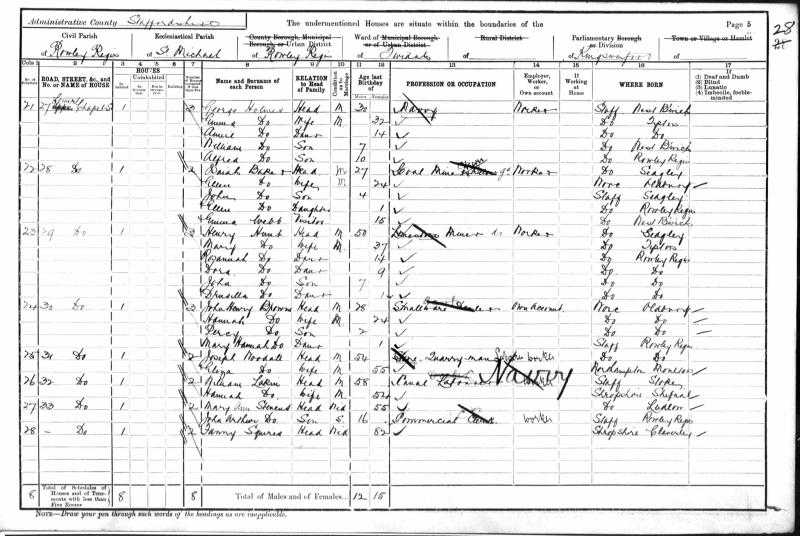 Administrative County Staffordshire
The undermentioned Houses are situate within the boundaries of the
Page 5
28
Civil Parish
of Rowley Regis
Ecclesiastical Parish
of St Michael
County Borough, Municipal Borough, or Urban District
of Rowley Regis
Ward of Municipal Borough or of Urban District
of Tividale
Rural District
of
Parliamentary Borough or Division
of Kingswinford
Town or Village or Hamlet
of
Cols 1 2 3 4 5 6 7 8 9 10 11 12 13 14 15 16 17
ROAD, STREET, &c., and No. or NAME of HOUSE
HOUSES
Uninhabited
Name and Surname of each Person
RELATION to Head of Family
Condition as to Marriage
Age last Birthday of
PROFESSION OR OCCUPATION
Employer, Worker, or Own account
If Working at Home
WHERE BORN
If
(1) Deaf and Dumb
(2) Blind
(3) Lunatic
(4) Imbecile, feeble-minded
21 27 Chapel St 1 3 George Holmes Head M 30 Navvy Worker Staff
Emma Do Wife M 32 Do Tipton
Annie Do Daur 14 Do Do
William Do Son 7 Do
Alfred Do Son 10 Do Rowley Regis
22 28 Do 1 2 Baker Head M 27 Coal Mine Worker Do Sedgley
Ellen Do Wife M 24 Worc Oldbury
John Do Son 4 Staff Sedgley
Ellen Do Daughter 1 Do Rowley Regis
Emma Webb Visitor 15 Do
23 29 Do 1 2 Henry Hunt Head M 50 Miner Worker Do Sedgley
Mary Do Wife M 37 Do Tipton
Rosannah Do Daur 14 Do Rowley Regis
Dora Do Daur 9 Do Do
John Do Son 7 Do Do
Drusilla Do Daur 1 Do Do
24 30 Do 1 3 John Henry Browne Head M 28 Smallware Dealer Own Account Worc Oldbury
Hannah Do Wife M 24 Do Do
Percy Do Son 2 Do Do
Mary Hannah Do Daur 1 Staff Rowley Regis
25 31 Do 1 2 Joseph Woodall Head M 54 Quarry-man worker Do Do
Eliza Do Wife M 55 Northampton Moulton
26 32 Do 1 2 William Lakin Head M 58 Canal Labourer Navvy worker Staff Stoke
Hannah Do Wife M 52 Shropshire Shifnal
27 33 Do 1 2 Mary Ann Stevens Head Wid 55 Do Ludlow
John Arthur Do Son S 16 Commercial Clerk worker Staff Rowley Regis
28 — Do 1 2 Fanny Squires Head Wid 52 Shropshire Claverley
8 Total of Schedules of Houses and of Tenements with less than Five Rooms 8 8 Total of Males and of Females... 12 15
NOTE—Draw your pen through such words of the headings as are inapplicable.